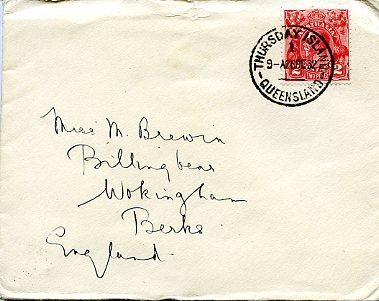 THURSDAY ISLAND
9-A
QUEENSLAND
2 2
Miss M. Brewin
Billingbear
Wokingham
Berks
England.